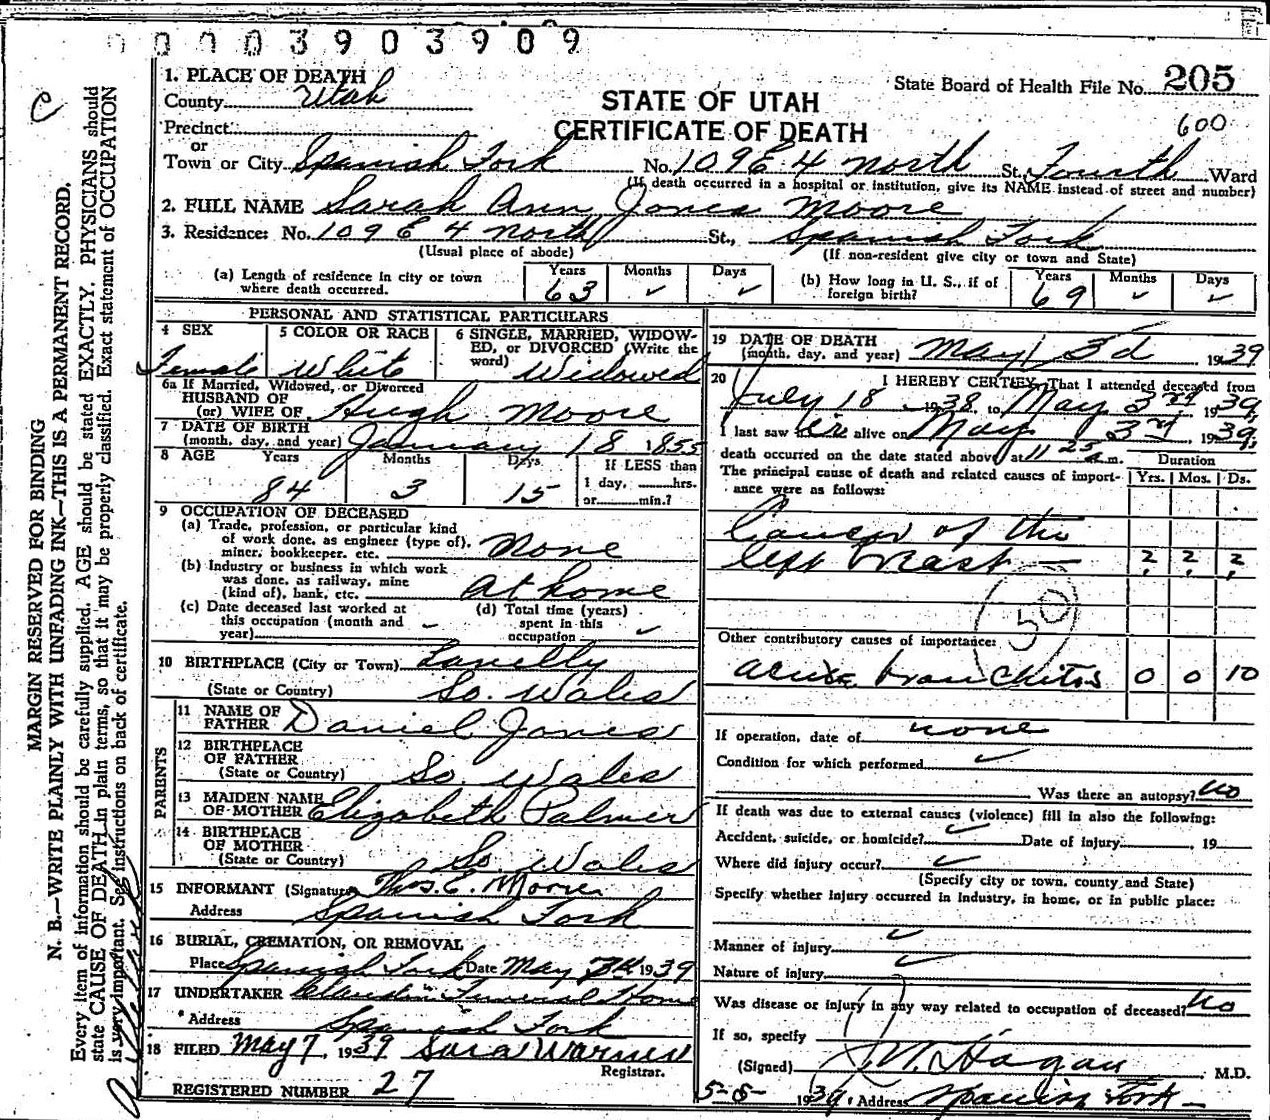 0003903909
1. PLACE OF DEATH
County Utah
State Board of Health File No. 205
STATE OF UTAH
CERTIFICATE OF DEATH
600
Precinct
or
Town or City Spanish Fork No. 109 E 4 North St. Fourth Ward
(If death occurred in a hospital or institution, give its NAME instead of street and number)
2. FULL NAME Sarah Ann Jones Moore
3. Residence: No. 109 E 4 North St., Spanish Fork
(Usual place of abode) (If non-resident give city or town and State)
(a) Length of residence in city or town where death occurred. Years 63 Months ✓ Days ✓
(b) How long in U. S., if of foreign birth? Years 69 Months ✓ Days ✓
PERSONAL AND STATISTICAL PARTICULARS
4 SEX Female
5 COLOR OR RACE White
6 SINGLE, MARRIED, WIDOWED, or DIVORCED (Write the word) Widowed
6a If Married, Widowed, or Divorced
HUSBAND OF
(or) WIFE OF Hugh Moore
7 DATE OF BIRTH
(month, day, and year) January 18 1855
8 AGE Years 84 Months 3 Days 15
If LESS than
1 day, hrs.
or min.?
9 OCCUPATION OF DECEASED
(a) Trade, profession, or particular kind
of work done, as engineer (type of),
miner, bookkeeper, etc. None
(b) Industry or business in which work
was done, as railway, mine
(kind of), bank, etc. At home
(c) Date deceased last worked at
this occupation (month and
year) -
(d) Total time (years)
spent in this
occupation ✓
10 BIRTHPLACE (City or Town) Lanelly
(State or Country) So. Wales
PARENTS
11 NAME OF
FATHER Daniel Jones
12 BIRTHPLACE
OF FATHER
(State or Country) So. Wales
13 MAIDEN NAME
OF MOTHER Elizabeth Palmer
14 BIRTHPLACE
OF MOTHER
(State or Country) So. Wales
15 INFORMANT (Signature) Thos. E. Moore
Address Spanish Fork
16 BURIAL, CREMATION, OR REMOVAL
Place Spanish Fork Date May 1939
17 UNDERTAKER Funeral Home
Address Spanish Fork
18 FILED May 7, 1939 Sara Warner
Registrar.
REGISTERED NUMBER 27
19 DATE OF DEATH
(month, day, and year) May 3d 1939
20 I HEREBY CERTIFY, That I attended deceased from
July 18 1938 to May 3rd 1939,
I last saw er alive on May 3rd, 1939,
death occurred on the date stated above, at 11 25 a.m.
Duration
The principal cause of death and related causes of importance were as follows:
Yrs. Mos. Ds.
Cancer of the
left breast — 2 2 2
50
Other contributory causes of importance:
acute bronchitis 0 0 10
If operation, date of none
Condition for which performed ✓
Was there an autopsy? no
If death was due to external causes (violence) fill in also the following:
Accident, suicide, or homicide? ✓ Date of injury , 19
Where did injury occur? ✓
(Specify city or town, county and State)
Specify whether injury occurred in industry, in home, or in public place:
✓
Manner of injury ✓
Nature of injury
Was disease or injury in any way related to occupation of deceased? no
If so, specify
(Signed) Hagan M.D.
5-8- 1939, Address Spanish Fork -
C
MARGIN RESERVED FOR BINDING
N. B.—WRITE PLAINLY WITH UNFADING INK—THIS IS A PERMANENT RECORD.
Every item of information should be carefully supplied. AGE should be stated EXACTLY. PHYSICIANS should
state CAUSE OF DEATH in plain terms, so that it may be properly classified. Exact statement of OCCUPATION
is very important. See instructions on back of certificate.